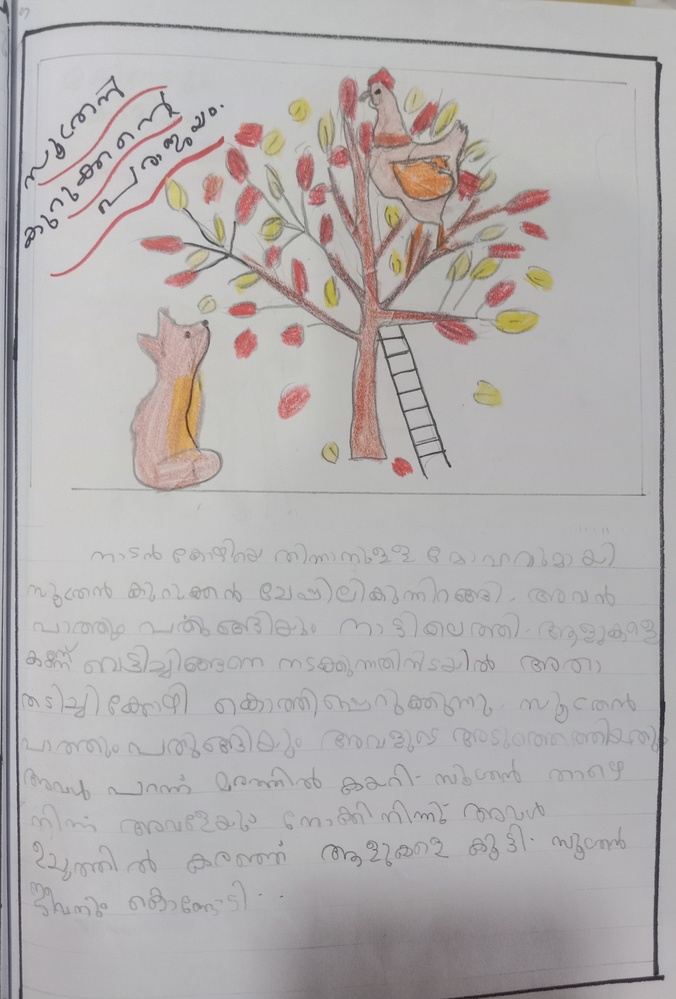 സൂത്രൻ
കുറുക്കന്റെ
പരാജയം.
നാടൻ കോഴിയെ തിന്നാനുള്ള മോഹവുമായി
സൂത്രൻ കുറുക്കൻ ചേമ്പിലികുന്നിറങ്ങി. അവൻ
പാത്തും പതുങ്ങിയും നാട്ടിലെത്തി. ആളുകളുടെ
കണ്ണ് വെട്ടിച്ചിങ്ങനെ നടക്കുന്നതിനിടയിൽ അതാ
തടിച്ചി ക്കോഴി കൊത്തിപ്പെറുക്കുന്നു. സൂത്രൻ
പാത്തും പതുങ്ങിയും അവളുടെ അടുത്തെത്തിയതും
അവൾ പറന്ന് മരത്തിൽ കയറി. സൂത്രൻ താഴെ
നിന്ന് അവളേയും നോക്കി നിന്നു. അവൾ
ഉച്ചത്തിൽ കരഞ്ഞ് ആളുകളെ കൂട്ടി. സൂത്രൻ
ജീവനും കൊണ്ടോടി...